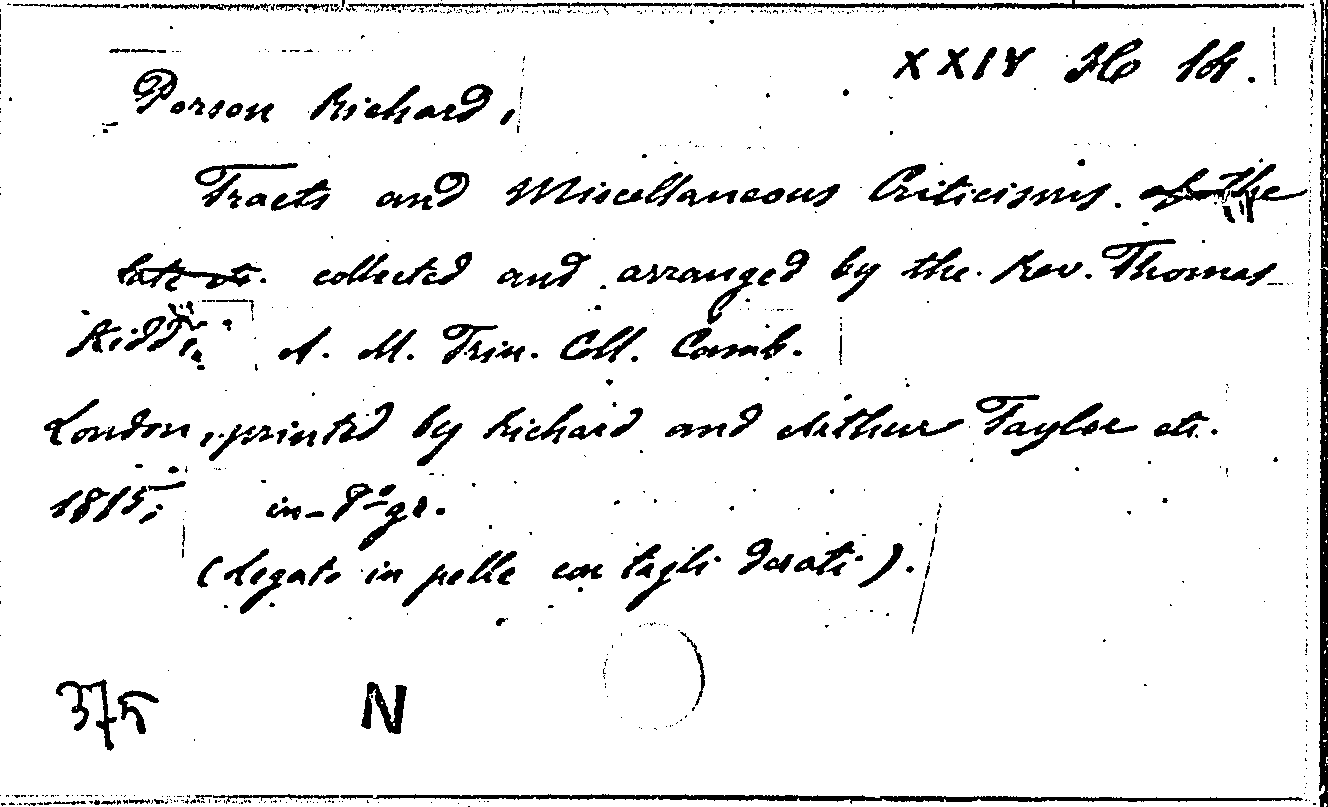 XXIV H 14.
Porson Richard,
Tracts and Miscellaneous Criticisms. of the
late etc. collected and arranged by the Rev. Thomas
Kidd, A. M. Trin. Coll. Camb.
London, printed by Richard and Arthur Taylor etc.
1815; in-8º gr.
(Legato in pelle con tagli dorati).
375 N